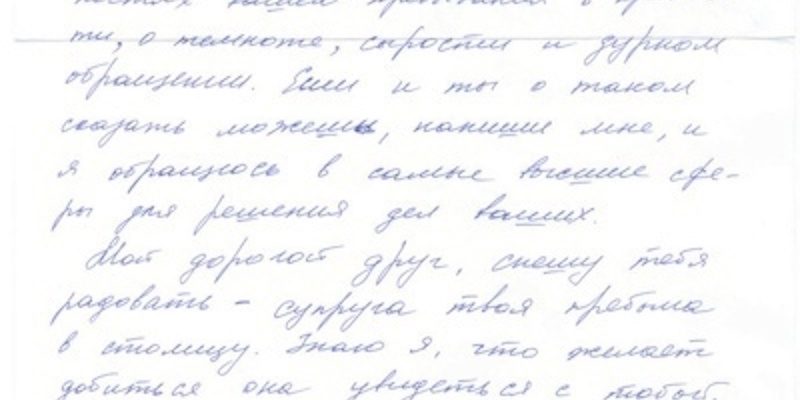 ностях вашего пребывания в крепос-
ти, о темноте, сырости и дурном
обращении. Если и ты о таком
сказать можешь, напиши мне, и
я обращусь в самые высшие сфе-
ры для решения дел ваших.
Мой дорогой друг, спешу тебя
радовать - супруга твоя прибыла
в столицу. Знаю я, что желает
добиться она увидеться с тобой,